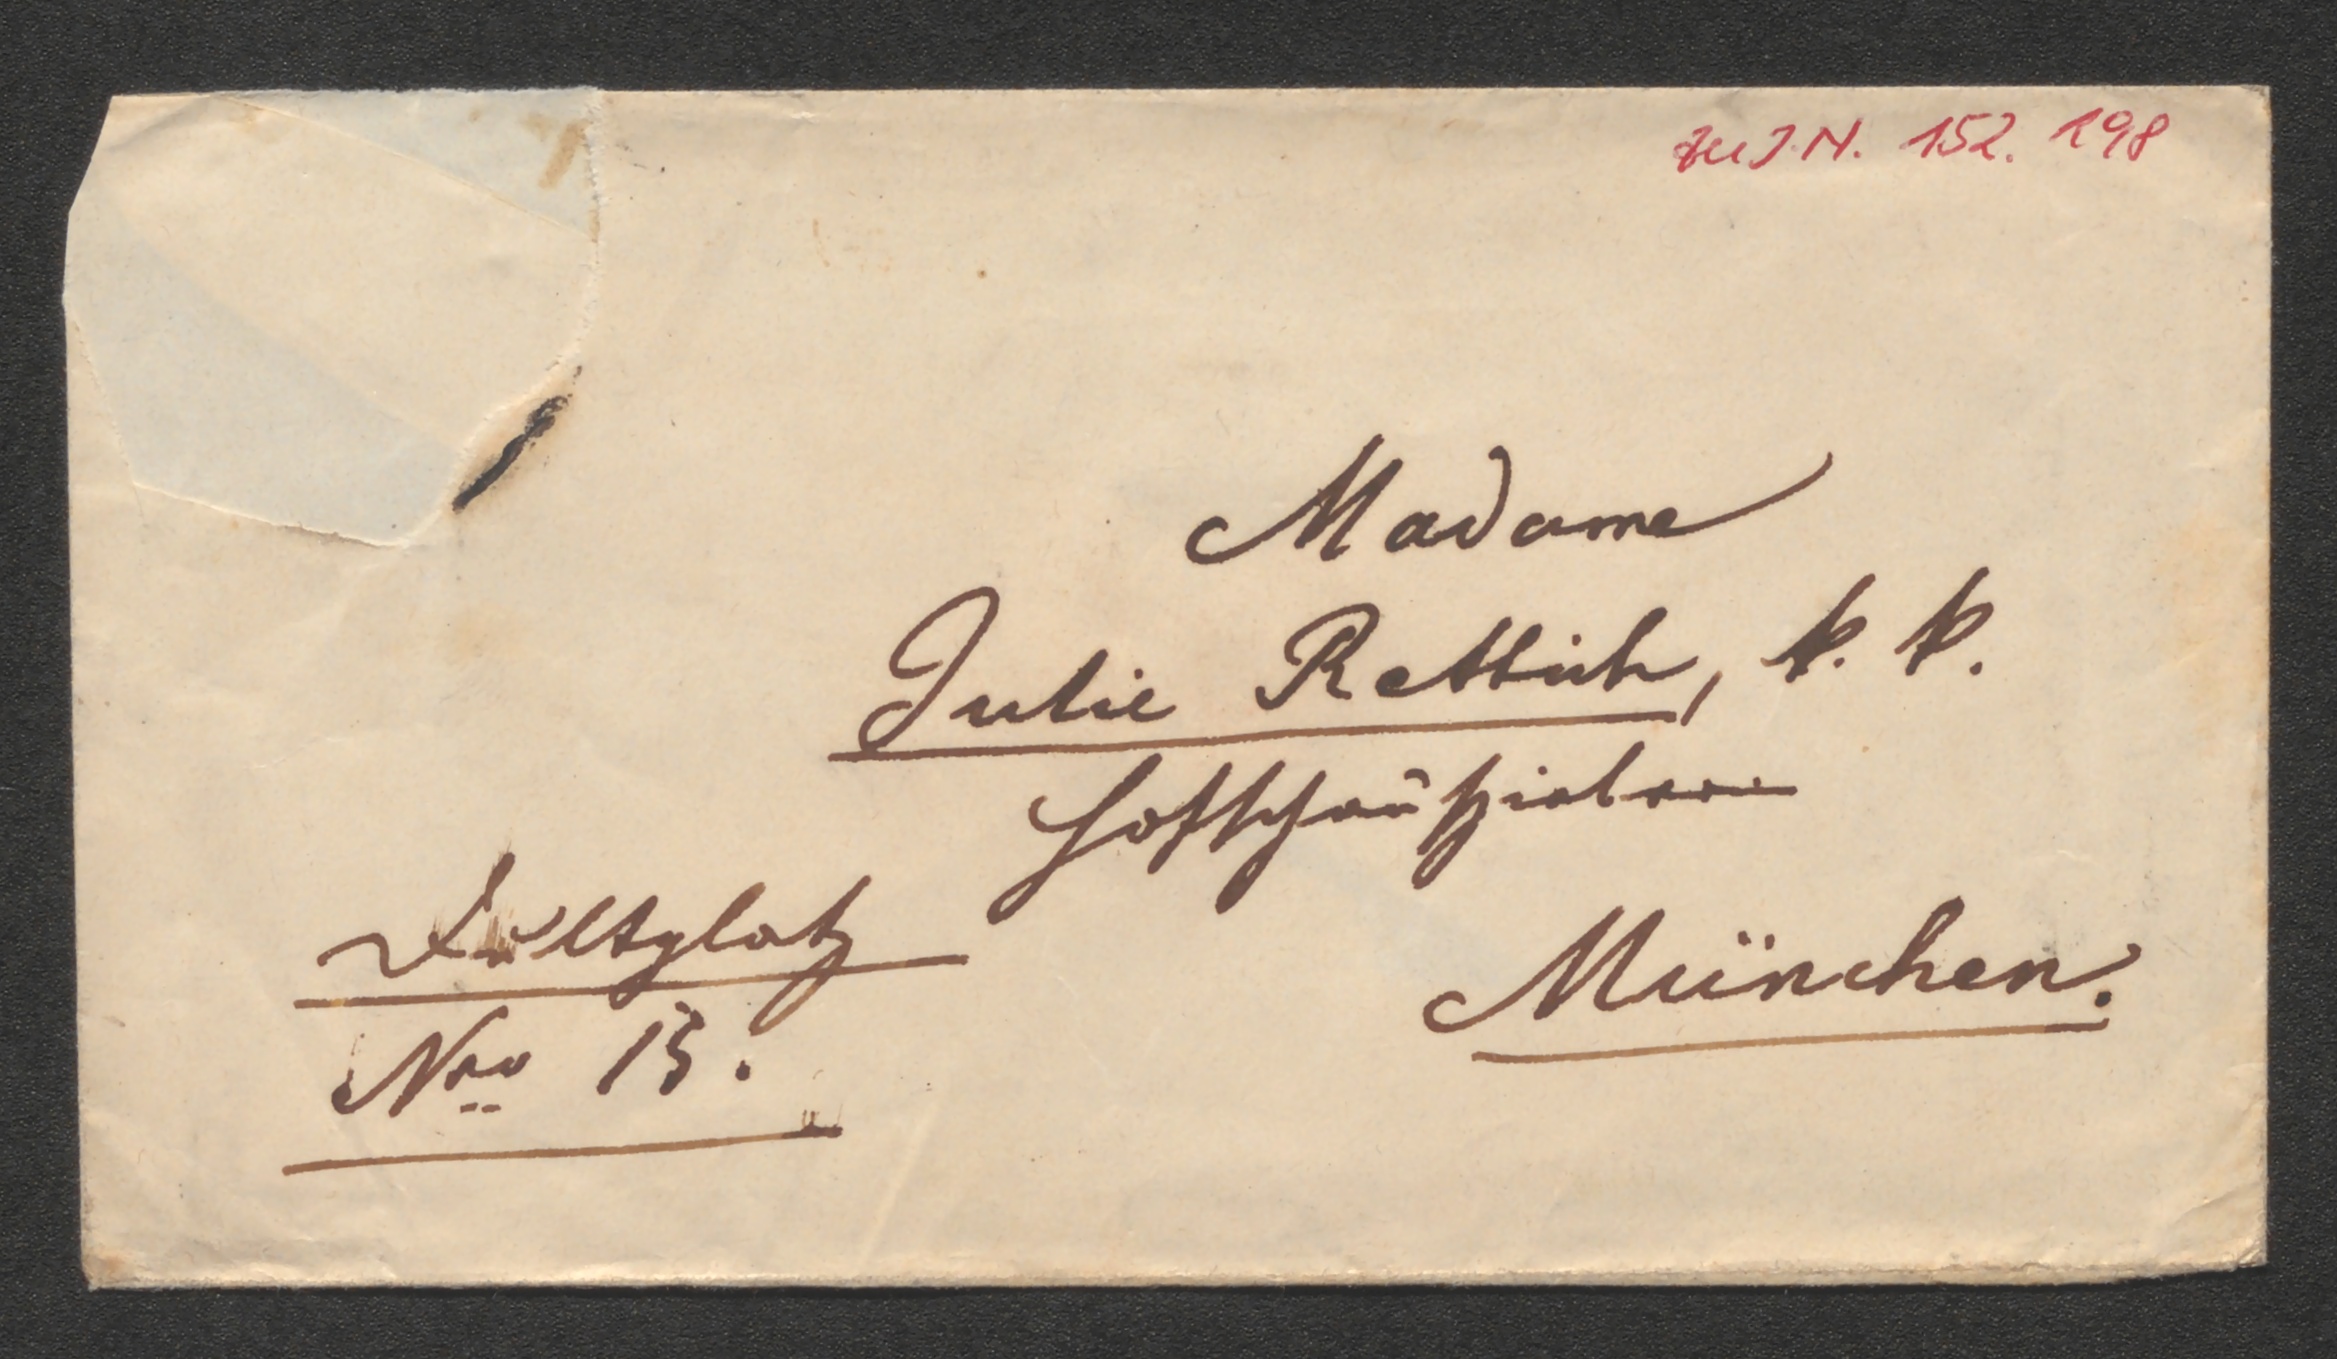 zu I.N. 152.198
Madame
Julie Rettich, k. k.
Hofschauspielerin
München.
Dultplatz
Nro 15.